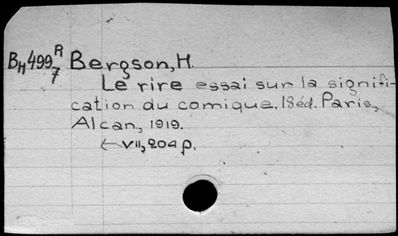 BH499R7 Bergson, H.
Le rire essai sur la signifi-
cation du comique. 18éd. Paris,
Alcan, 1919.
VII, 204 p.